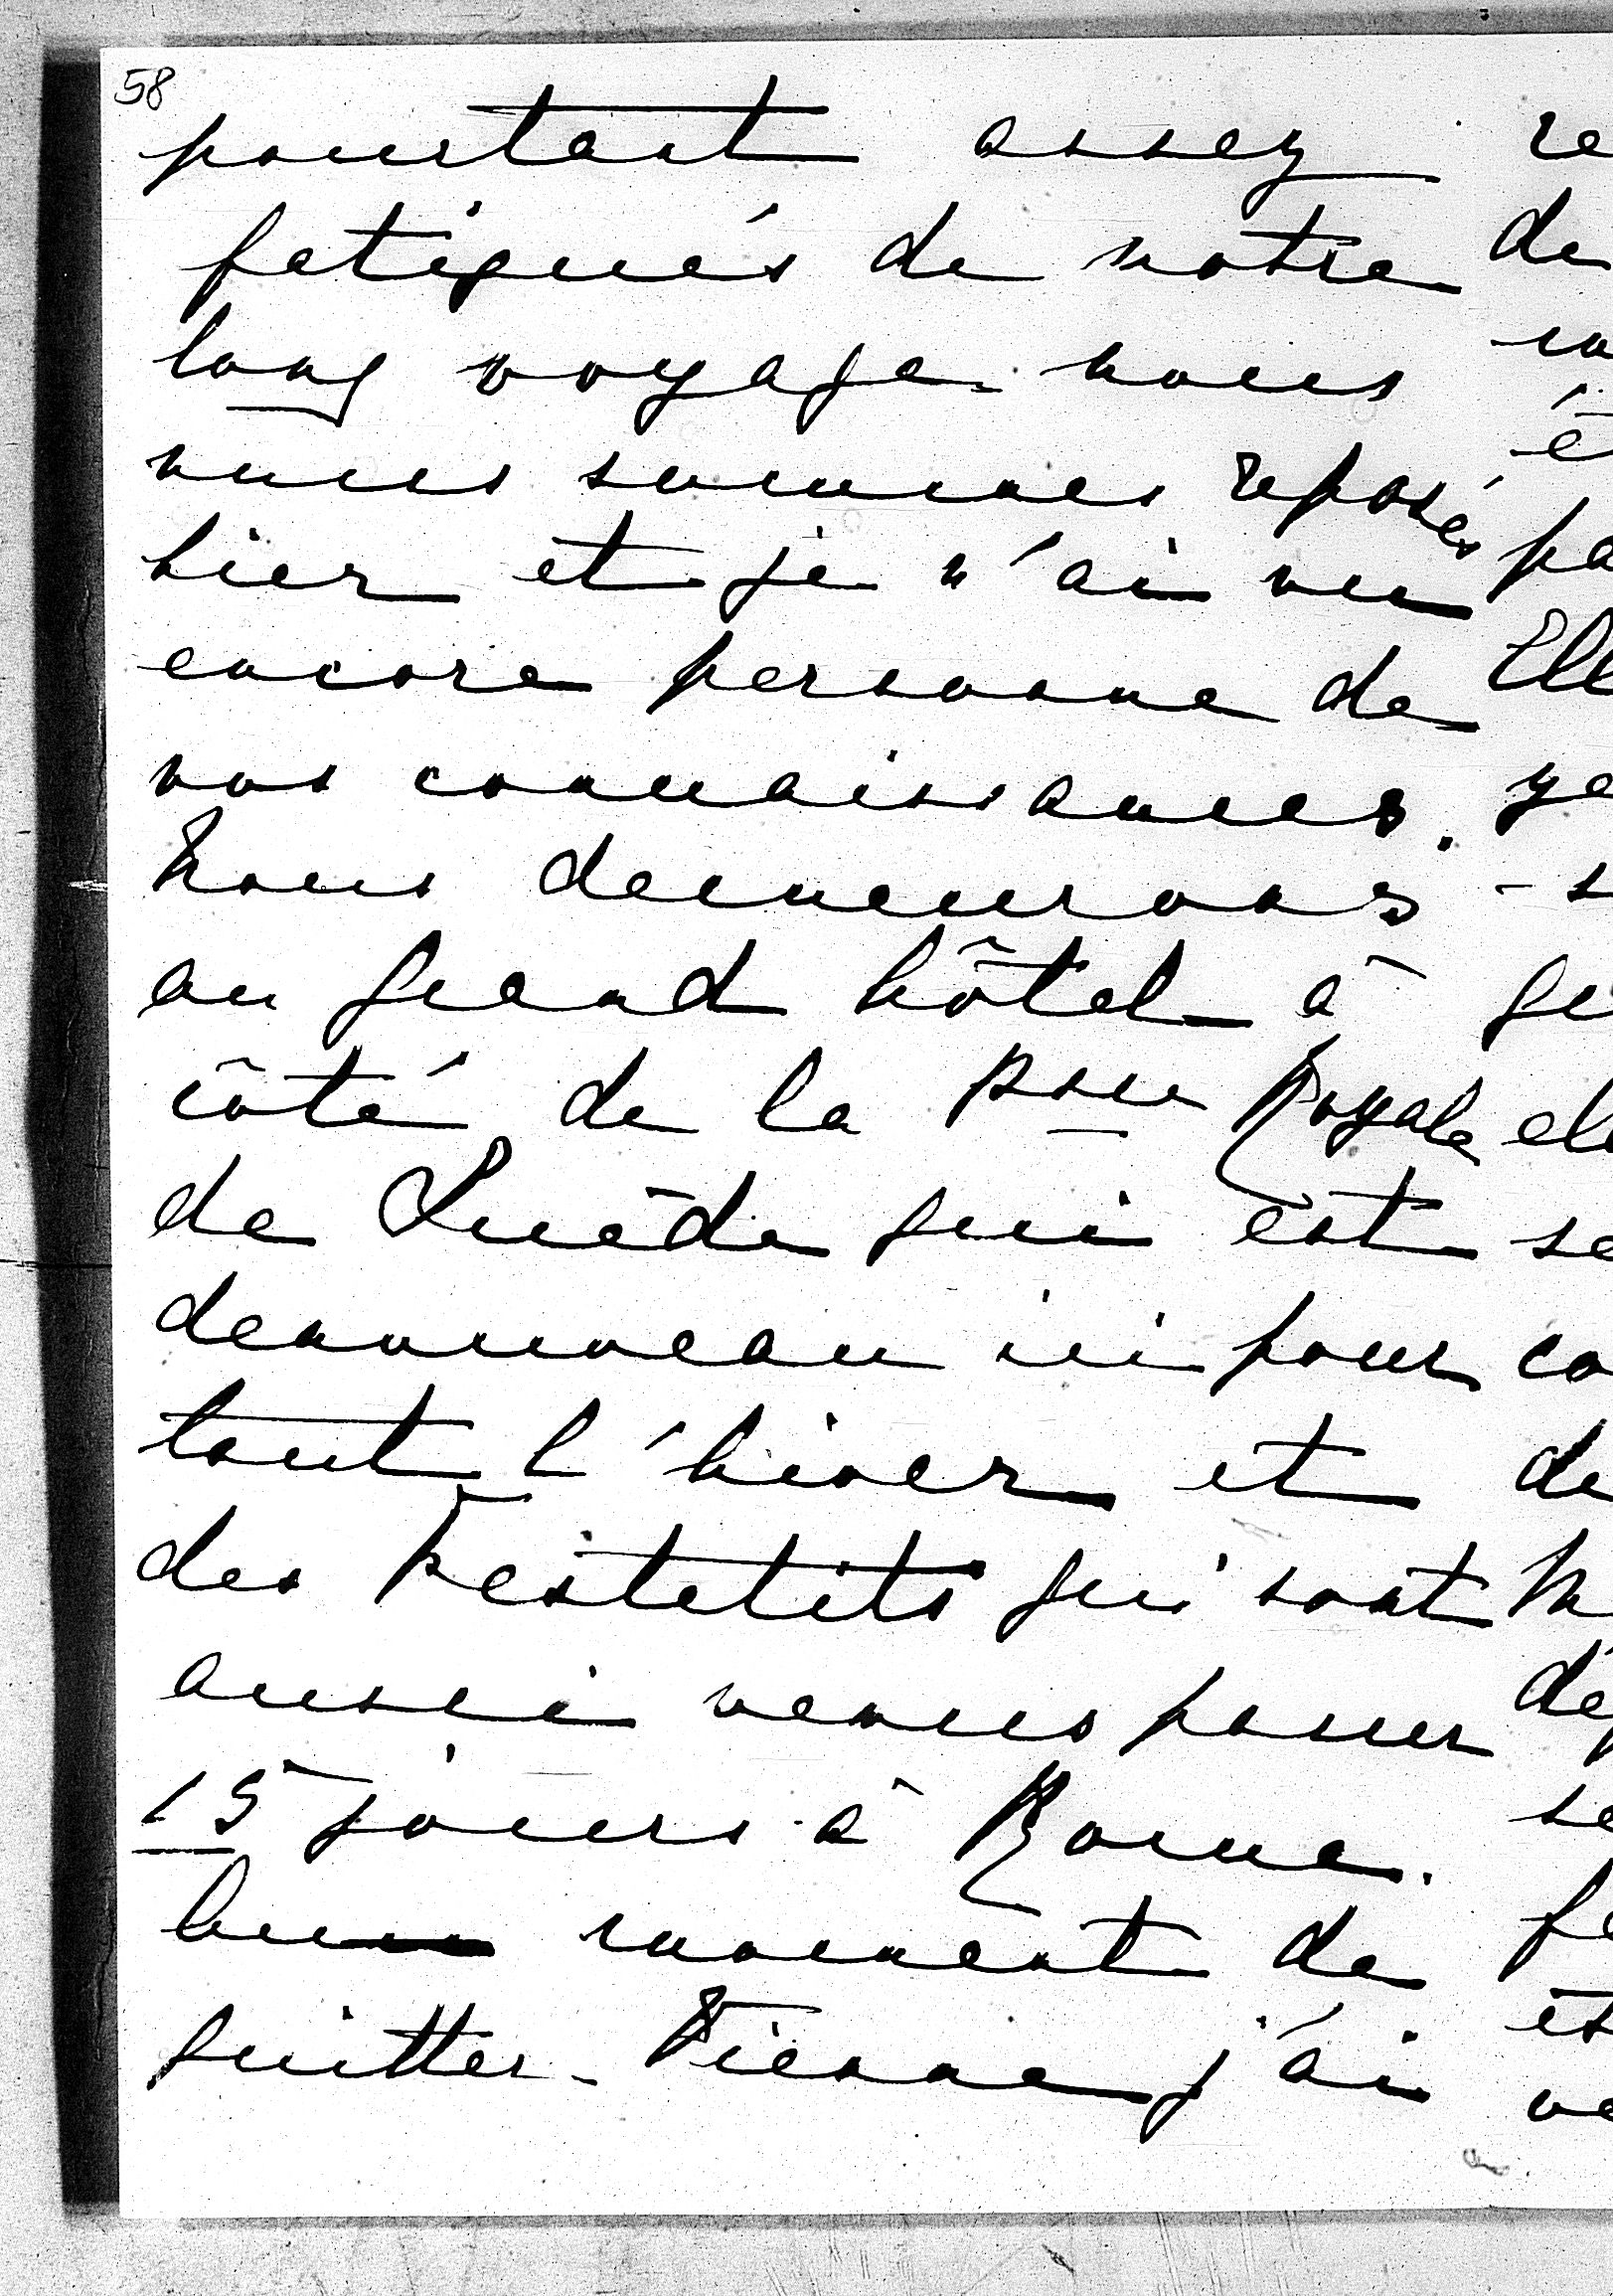 58
pourtant assez
fatigués de notre
long voyage nous
nous sommes reposés
hier et je n'ai vu
encore personne de
nos connaissances.
Nous demeurons
au grand hôtel à
côté de la Reine Royale
de Suède qui est
denouveau ici pour
tout l'hiver et
des Festetits qui sont
aussi venus pour
15 jours à Rome.
moment de
quitter Vienne j'ai